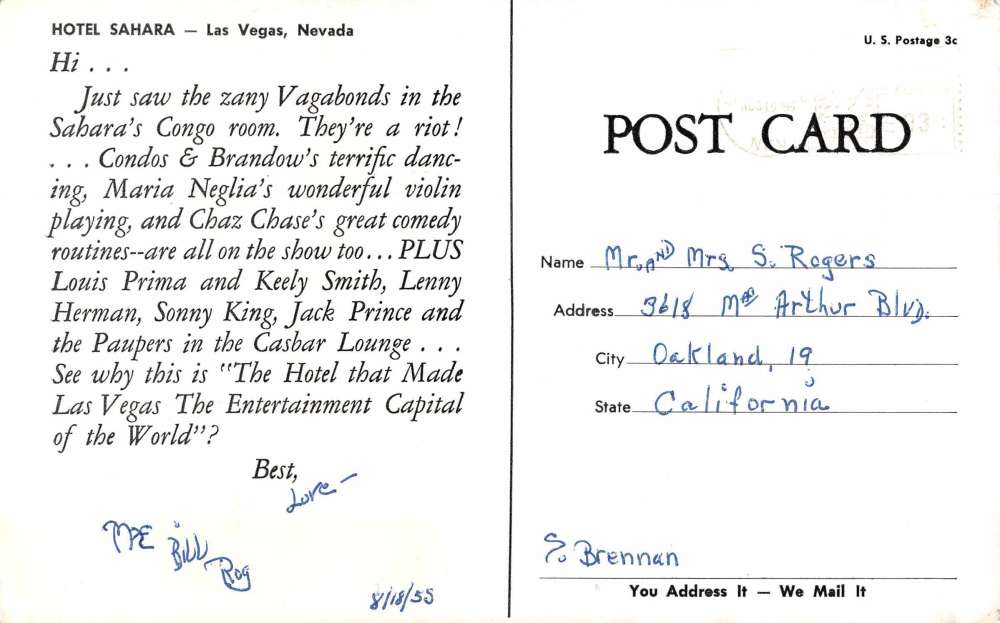 HOTEL SAHARA — Las Vegas, Nevada
Hi . . .
Just saw the zany Vagabonds in the
Sahara's Congo room. They're a riot!
. . . Condos & Brandow's terrific danc-
ing, Maria Neglia's wonderful violin
playing, and Chaz Chase's great comedy
routines--are all on the show too... PLUS
Louis Prima and Keely Smith, Lenny
Herman, Sonny King, Jack Prince and
the Paupers in the Casbar Lounge . . .
See why this is "The Hotel that Made
Las Vegas The Entertainment Capital
of the World"?
Best,
Love-
Bill
Rog
8/18/55
U. S. Postage 3c
POST CARD
Name Mr. AND Mrs. S. Rogers
Address 3618 Mac Arthur Blvd.
City Oakland, 19
State California
S. Brennan
You Address It — We Mail It